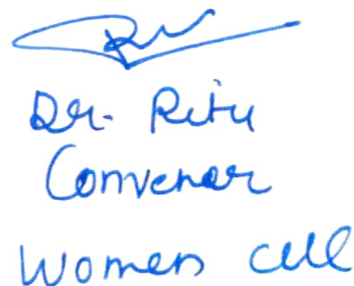 Dr. Ritu
Convenor
Women cell